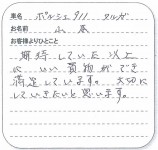 車名 ポルシェ911 タルガ
お名前 山本
お客様よりひとこと
期待していた以上
に、いい買物ができ
満足しています。大切に
していきたいと思います。